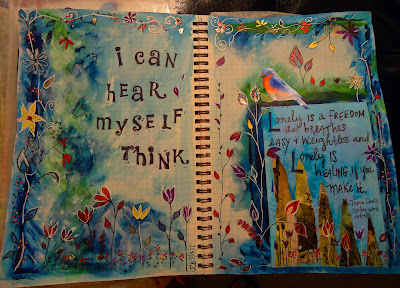 i CAN
hEAR
mySELF
ThiNK
Lonely is a FREEDOM
that BREATHES
EASY + Weightless and
Lonely is
HEALING if you
MAKE it.